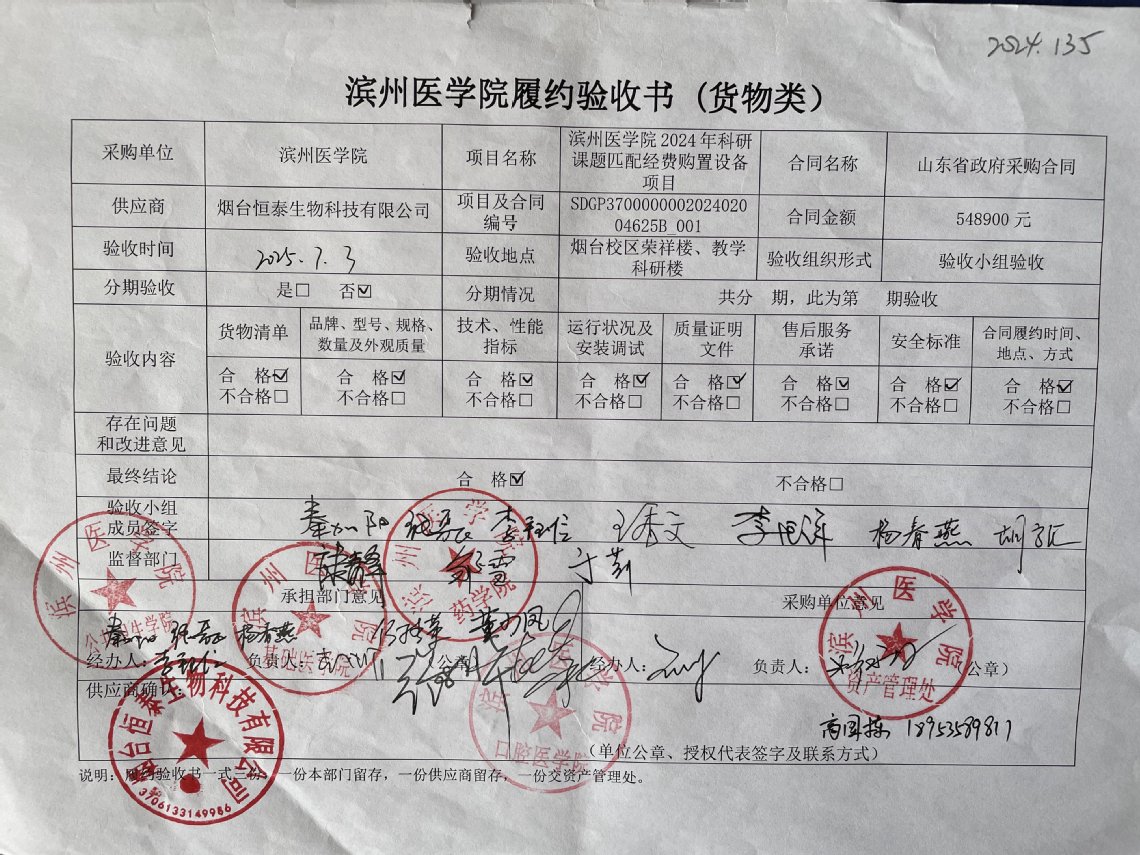 2024.135
滨州医学院履约验收书（货物类）
采购单位 滨州医学院 项目名称 滨州医学院 2024 年科研课题匹配经费购置设备项目 合同名称 山东省政府采购合同
供应商 烟台恒泰生物科技有限公司 项目及合同编号 SDGP370000000202402004625B_001 合同金额 548900 元
验收时间 2025.7.3 验收地点 烟台校区荣祥楼、教学科研楼 验收组织形式 验收小组验收
分期验收 是□ 否☑ 分期情况 共分 期，此为第 期验收
验收内容
货物清单 品牌、型号、规格、数量及外观质量 技术、性能指标 运行状况及安装调试 质量证明文件 售后服务承诺 安全标准 合同履约时间、地点、方式
合 格☑ 合 格☑ 合 格☑ 合 格☑ 合 格☑ 合 格☑ 合 格☑ 合 格☑
不合格□ 不合格□ 不合格□ 不合格□ 不合格□ 不合格□ 不合格□ 不合格□
存在问题和改进意见
最终结论 合 格☑ 不合格□
验收小组成员签字 杨春燕
监督部门
承担部门意见 采购单位意见
杨春燕
经办人： 负责人： （公章） 经办人： 负责人： （公章）
供应商确认：
商国栋 18953589817
（单位公章、授权代表签字及联系方式）
说明：履约验收书一式三份，一份本部门留存，一份供应商留存，一份交资产管理处。
滨州医学院
公共卫生学院
滨州医学院
基础医学院
滨州医学院
药学院
滨州医学院
口腔医学院
滨州医学院
资产管理处
烟台恒泰生物科技有限公司
3706133149986